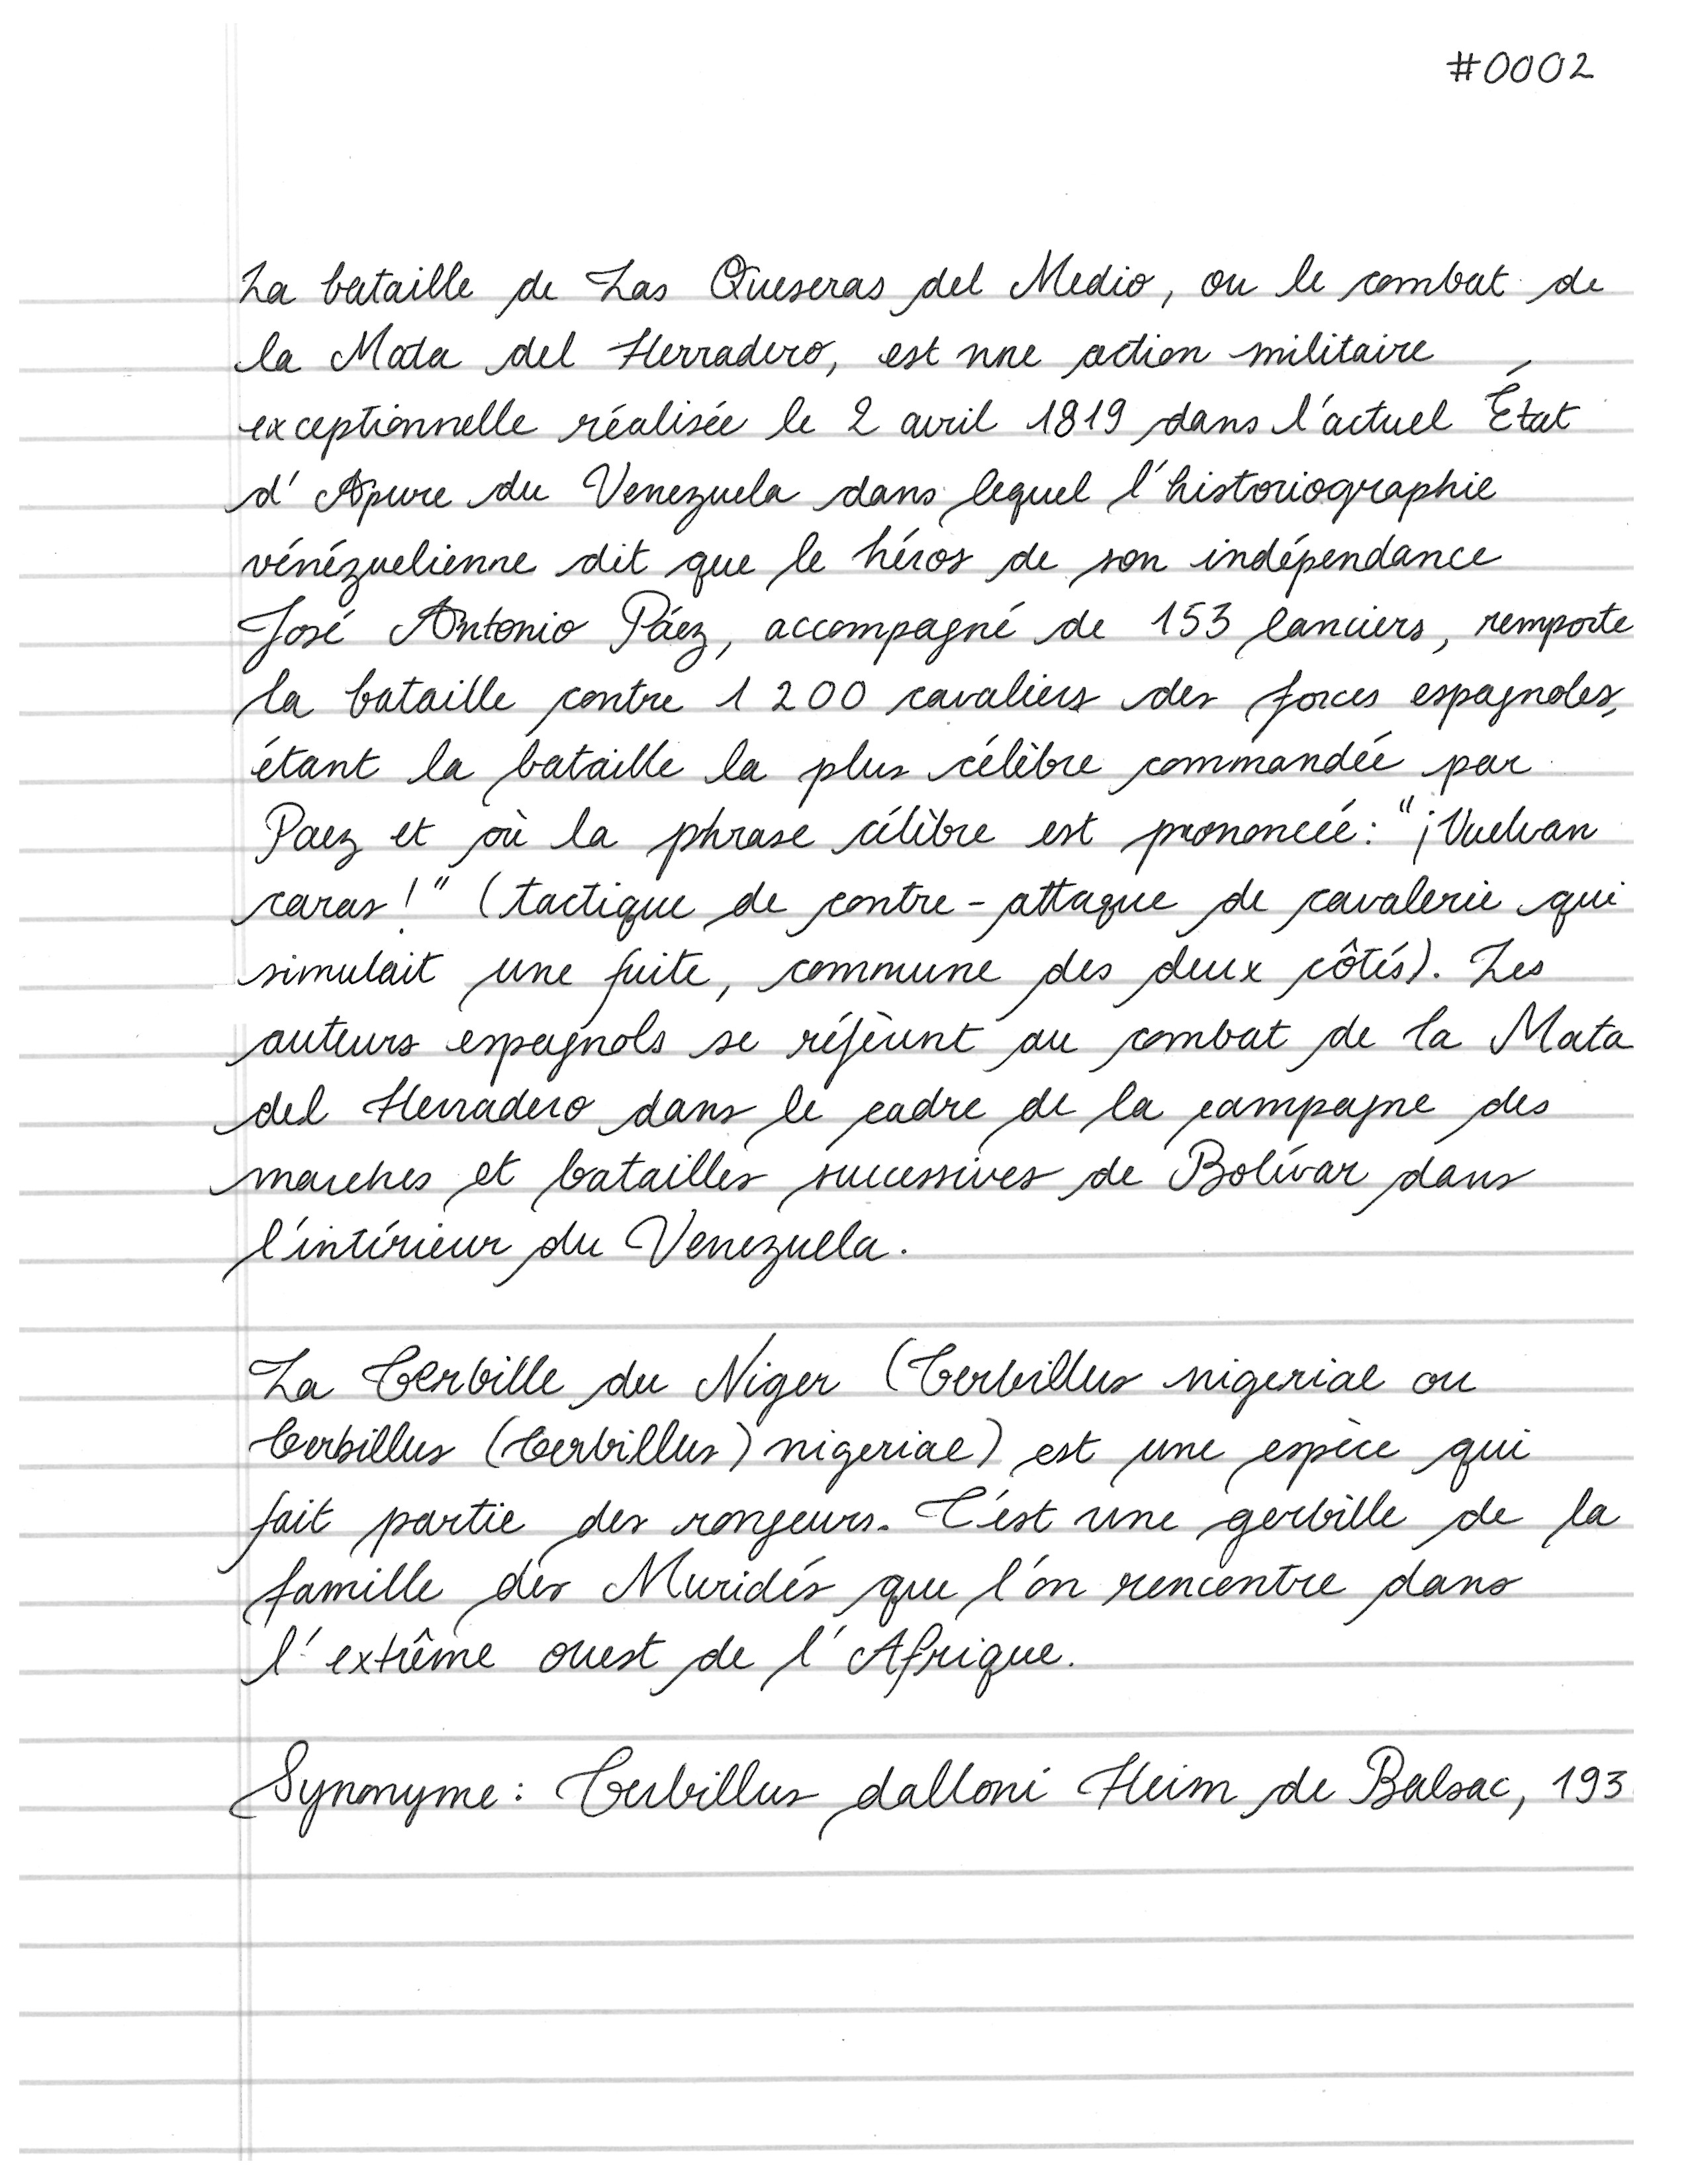 #0002
La bataille de Las Queseras del Medio, ou le combat de
la Mata del Herradero, est une action militaire
exceptionnelle réalisée le 2 avril 1819 dans l'actuel État
d'Apure du Venezuela dans lequel l'historiographie
vénézuelienne dit que le héros de son indépendance
José Antonio Páez, accompagné de 153 lanciers, remporte
la bataille contre 1 200 cavaliers des forces espagnoles,
étant la bataille la plus célèbre commandée par
Paez et où la phrase célèbre est prononcée: "¡Vuelvan
caras!" (tactique de contre-attaque de cavalerie qui
simulait une fuite, commune des deux côtés). Les
auteurs espagnols se réfèrent au combat de la Mata
del Herradero dans le cadre de la campagne des
marches et batailles successives de Bolívar dans
l'intérieur du Venezuela.
La Gerbille du Niger (Gerbillus nigeriae ou
Gerbillus (Gerbillus) nigeriae) est une espèce qui
fait partie des rongeurs. C'est une gerbille de la
famille des Muridés que l'on rencontre dans
l'extrême ouest de l'Afrique.
Synonyme: Gerbillus dalloni Heim de Balsac, 193